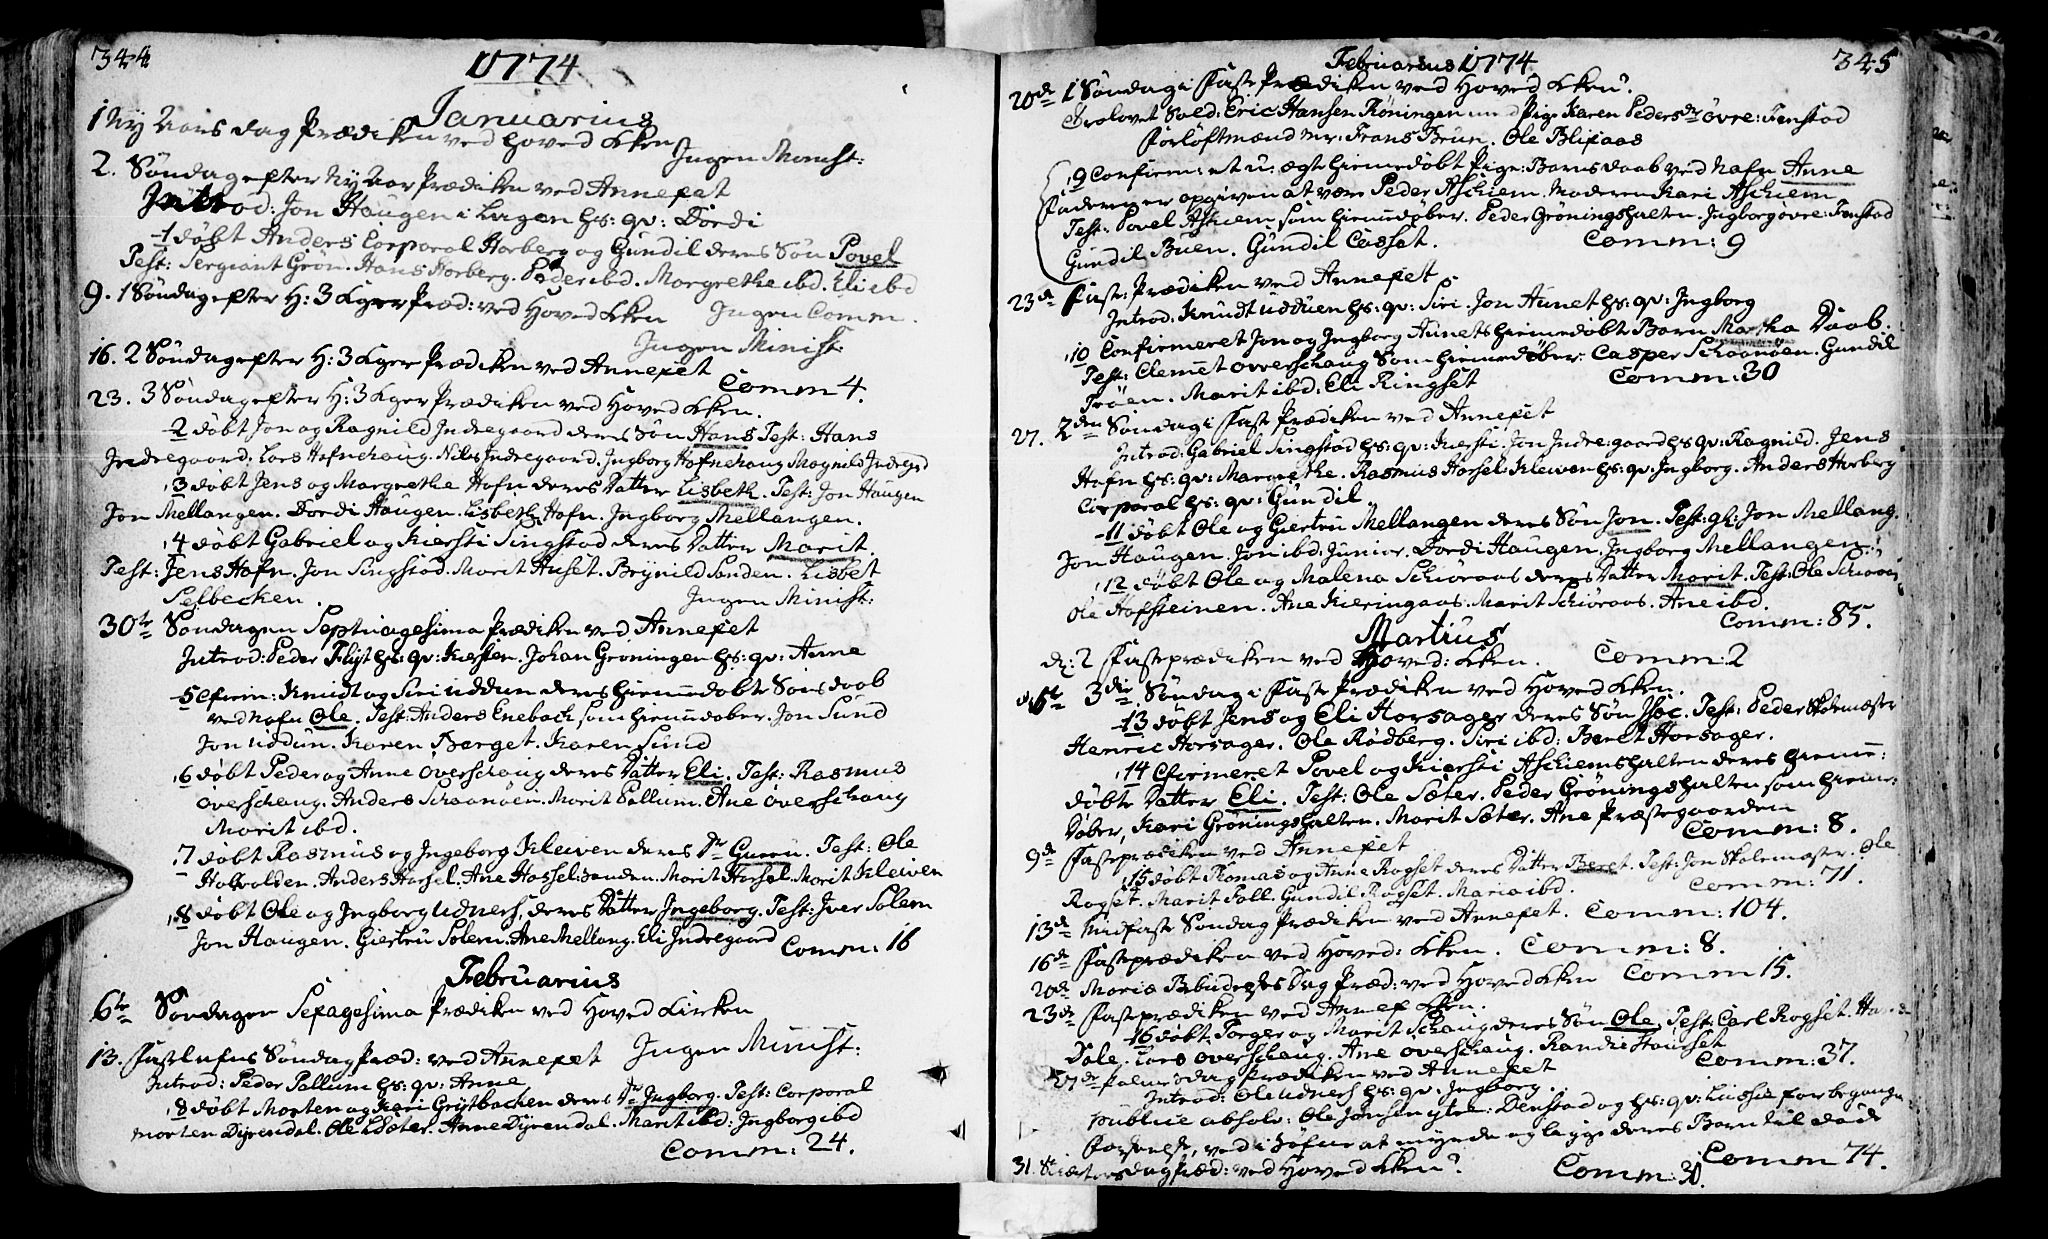 344
1774
Januarius
1 Ny Aars dag Prædiken ved Hoved Kken
Ingen Minist:
2. Søndag efter Ny Aar Prædiken ved Annexet
Introd: Jon Haugen i Lagen hs: qv: Dordi
1 døbt Anders Corporal Horberg og Gundil deres Søn Povel
Test: Sergiant Grøn. Hans Horberg. Peder ibd. Margrethe ibd. Eli ibd
9. 1 Søndag efter H: 3 Kger Præd: ved Hoved Kken Ingen Comm.
Ingen Minist:
16. 2 Søndag efter H: 3 Kger Prædiken ved Annexet
Comm 4.
23. 3 Søndag efter H: 3 Kger Prædiken ved Hoved Kken.
2 døbt Jon og Ragnild Indregaard deres Søn Hans Test: Hans
Indregaard. Lars Hofnehaug. Nils Indregaard. Ingborg Hofnehaug Magnild Indregrd
3 døbt Jens og Margrethe Hofn deres Datter Lisbeth. Test: Jon Haugen
Jon Mellangen. Dordi Haugen. Lisbeth Hofn. Ingborg Mellangen.
4 døbt Gabriel og Kiersti Singstad deres Datter Marit.
Test: Jens Hofn. Jon Singstad. Marit Huset. Brynild Sanden. Lisbet
Selbecken. Ingen Minist:
30te Søndagen Septuagesima Prædiken ved Annexet
Introd: Peder Flyt hs: qv: Kirsten. Johan Grøningen hs: qv: Anne
5 Cfirm: Knudt og Siri Uddun deres hiemmedøbte Søns daab
ved Nafn Ole. Test: Anders Enebach som hiemmedøber. Jon Sund
Jon Uddun. Karen Berget. Karen Sund
6 døbt Peder og Anne Overschaug deres Datter Eli. Test: Rasmus
Overschaug. Anders Schaanøen. Marit Pallum. Ane Overschaug
Marit ibd.
7 døbt Rasmus og Ingeborg Kleiven deres Dr Guru. Test: Ole
Holvolden. Anders Horsel. Ane Hossel:sanden. Marit Horsel. Marit Kleiven
8 døbt Ole og Ingborg Udness, deres Datter Ingeborg. Test: Iver Solem
Jon Haugen. Giertru Solem. Ane Mellang. Eli Indregaard Comm: 16
Februarius
6te Søndagen Sexagesima Prædiken ved Hoved Kirken
13. Fastelafns Søndag Præd: ved Annexet Ingen Minist:
Introd: Peder Pallum hs: qv: Anne
8 døbt Morten og Kari Grytbacken deres Dr Ingborg. Test: Corporal
Morten Dyrendal. Ole Sæter. Anne Dyrendal. Marit ibd: Ingborg ibd
Comm: 24.
Februarius 1774
345
20de 1 Søndag i Faste Prædiken ved Hoved Kken.
Trolovet Sold: Eric Hansen Røningen med Pige Karen Pedersdr Øvre: Fenstad
Forløftmænd Mr: Frans Brun. Ole Blixaas
9 Confirm: et u: ægte hiemmedøbt Pige: Barns daab ved Nafn Anne
Faderen er opgiven at være Peder Aschiem. Moderen Kari Aschiem
Test: Povel Aschiem som hiemmedøber. Peder Grøningshalten. Ingborg Øvre: Fenstad
Gundil Buen. Gundil Casset. Comm: 9
23de Faste: Prædiken ved Annexet
Introd: Knudt Udduen hs: qv: Siri. Jon Aunet hs: qv: Ingborg
10 Confirmeret Jon og Ingborg Aunets hiemmedøbte Barn Martha Daab.
Test: Clemet Overschaug som hiemmedøber. Casper Schaanøen. Gundil
Trøen. Marit ibd. Eli Ringset Comm: 30
27. 2den Søndag i Faste Prædiken ved Annexet
Introd: Gabriel Singstad hs: qv: Kiersti. Jon Indre:gaard hs qv: Ragnild. Jens
Hofn hs: qv: Margrethe. Rasmus Horsel: Kleiven hs: qv: Ingborg. Anders Horberg
Corporal hs: qv: Gundil.
11 døbt Ole og Giertru Mellangen deres Søn Jon. Test: gl: Jon Mellang.
Jon Haugen. Jon ibd: Junior. Dordi Haugen. Ingborg Mellangen.
12 døbt Ole og Malena Schiøraas deres Datter Marit. Test: Ole Schiøraas
Ole Hofsteinen. Ane Kieringaas. Marit Schiøraas. Ane ibd.
Comm: 85.
Martius
d: 2 Fasteprædiken ved Hoved: Kken. Comm: 2
d: 6te 3die Søndag i Faste Prædiken ved Hoved Kken.
13 døbt Jens og Eli Horsager deres Søn Isac. Test: Peder Skolemæster
Henric Horsager. Ole Rødberg. Siri ibd: Beret Horsager.
14 Cfirmeret Povel og Kiersti Aschiemshalten deres hiemme:
døbte Datter Eli. Test: Ole Sæter. Peder Grøningshalten som hiemme:
døber, Kari Grøningshalten. Marit Sæter. Ane Præstegaarden
Comm: 8.
9de Fasteprædiken ved Annexet
15 døbt Thomas og Anne Rogset deres Datter Beret. Test: Jon Skolemæster. Ole
Rogset. Marit Fall. Gundil Rogset. Maria ibd. Comm: 71
13de Midfaste Søndag Prædiken ved Annexet. Comm: 104.
16de Fasteprædiken ved Hoved: Kken. Comm: 8.
20de Mariæ Bebudelses Dag Præd: ved Hoved Kken Comm 15.
23de Fasteprædiken ved Annex Kken.
16 døbt Torger og Marit Schaug deres Søn Ole. Test: Carl Rogset. Ha
Dale. Lars Overschaug. Ane Overschaug. Randi Hauset
Comm: 37.
27de Palmesdag Prædiken ved Annexet
Introd: Ole Udness hs: qv: Ingborg.
Publice absolv: Ole Jonsen ytre: Denstad og hs: qv: Lussie for begangne
Forseelse, ved i Søfne at mynde og legge deres Barn til døde
Comm 74.
31. Skiærtorsdag Præd: ved Hoved Kken. Comm: 30.